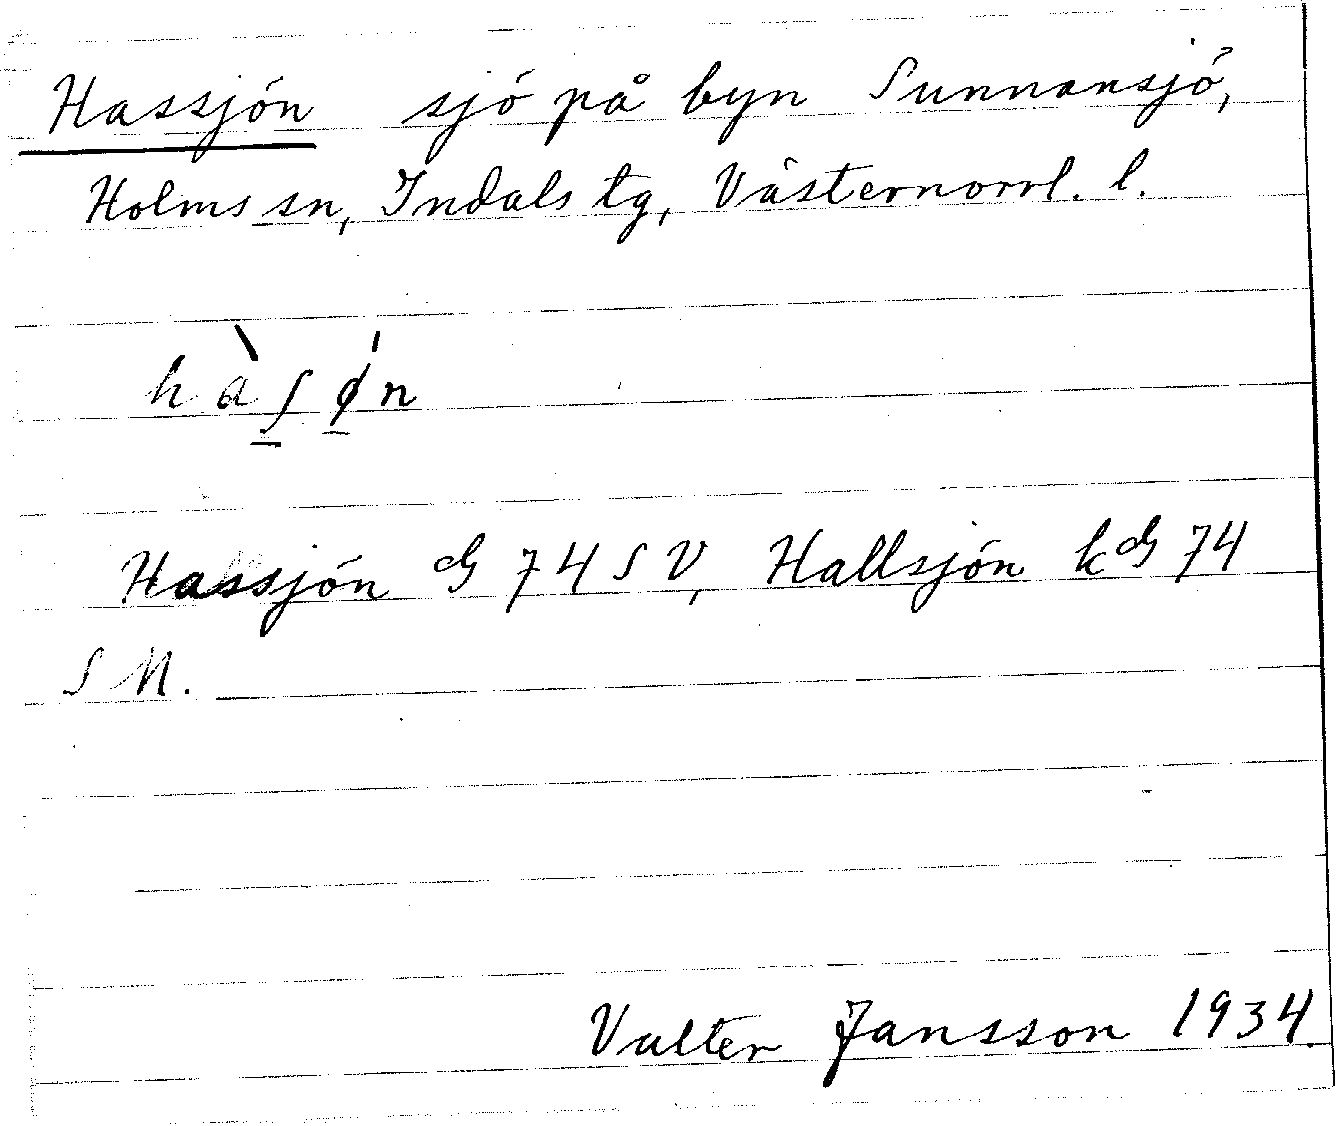 Hassjön sjö på byn Sunnansjö,
Holms sn, Indals tg, Västernorrl. l.
hàʃø̀n
Hassjön G 74 S V, Hallsjön k G 74
S N.
Valter Jansson 1934.